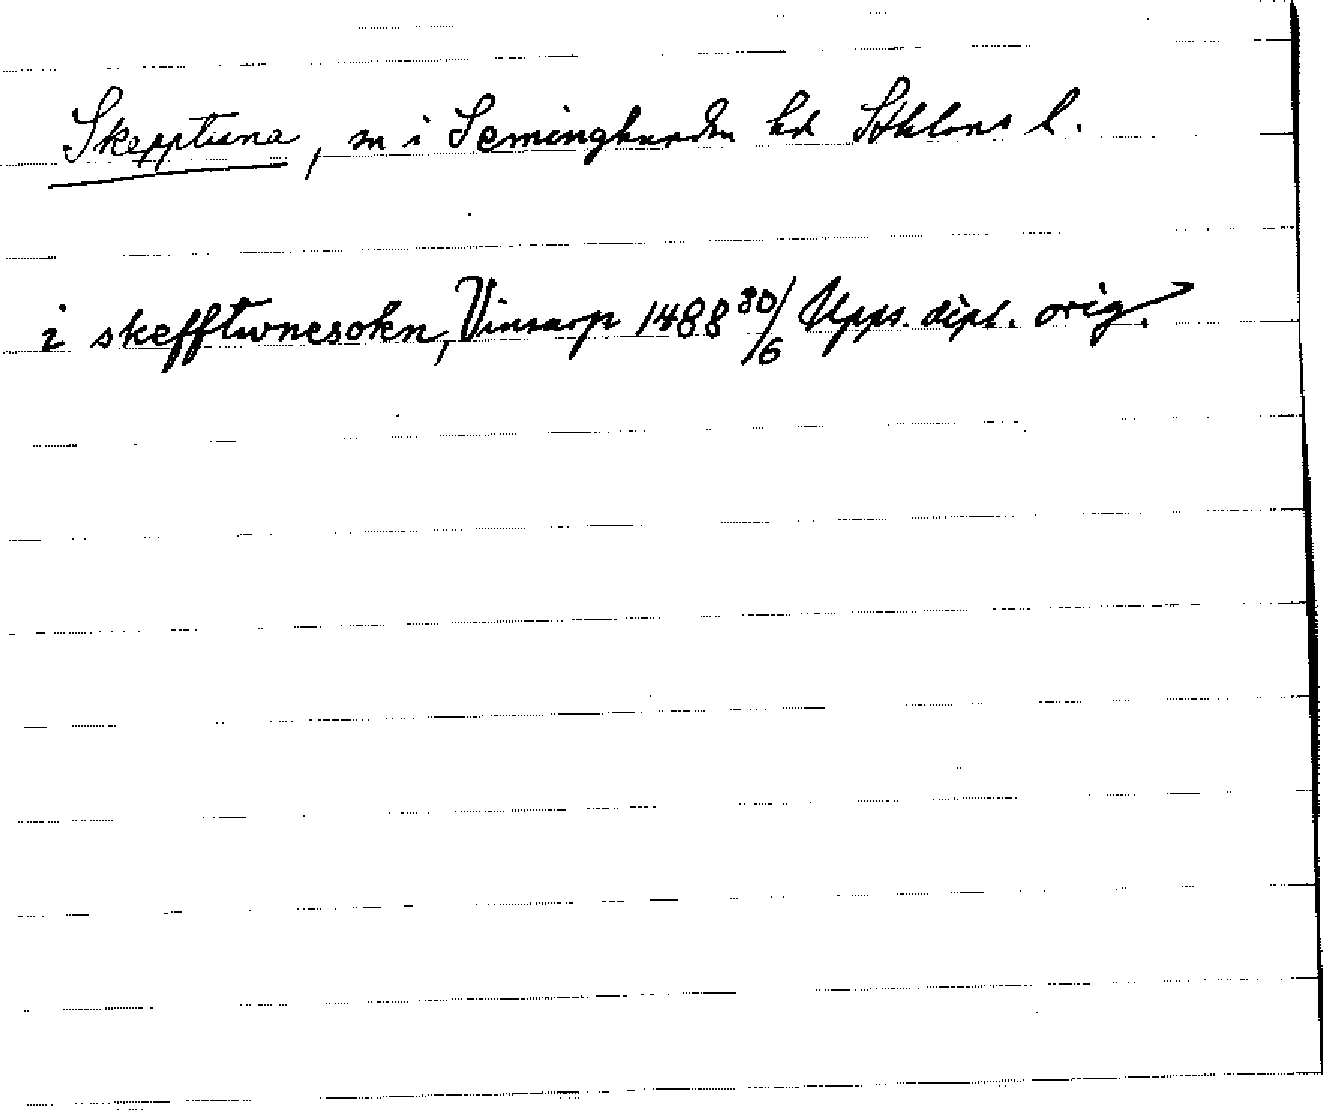 Skepptuna, sn i Seminghundra hd Sthlms l.
i skefftwnesokn, Vinsarp 1488 30/6 Upps. dipl. orig.